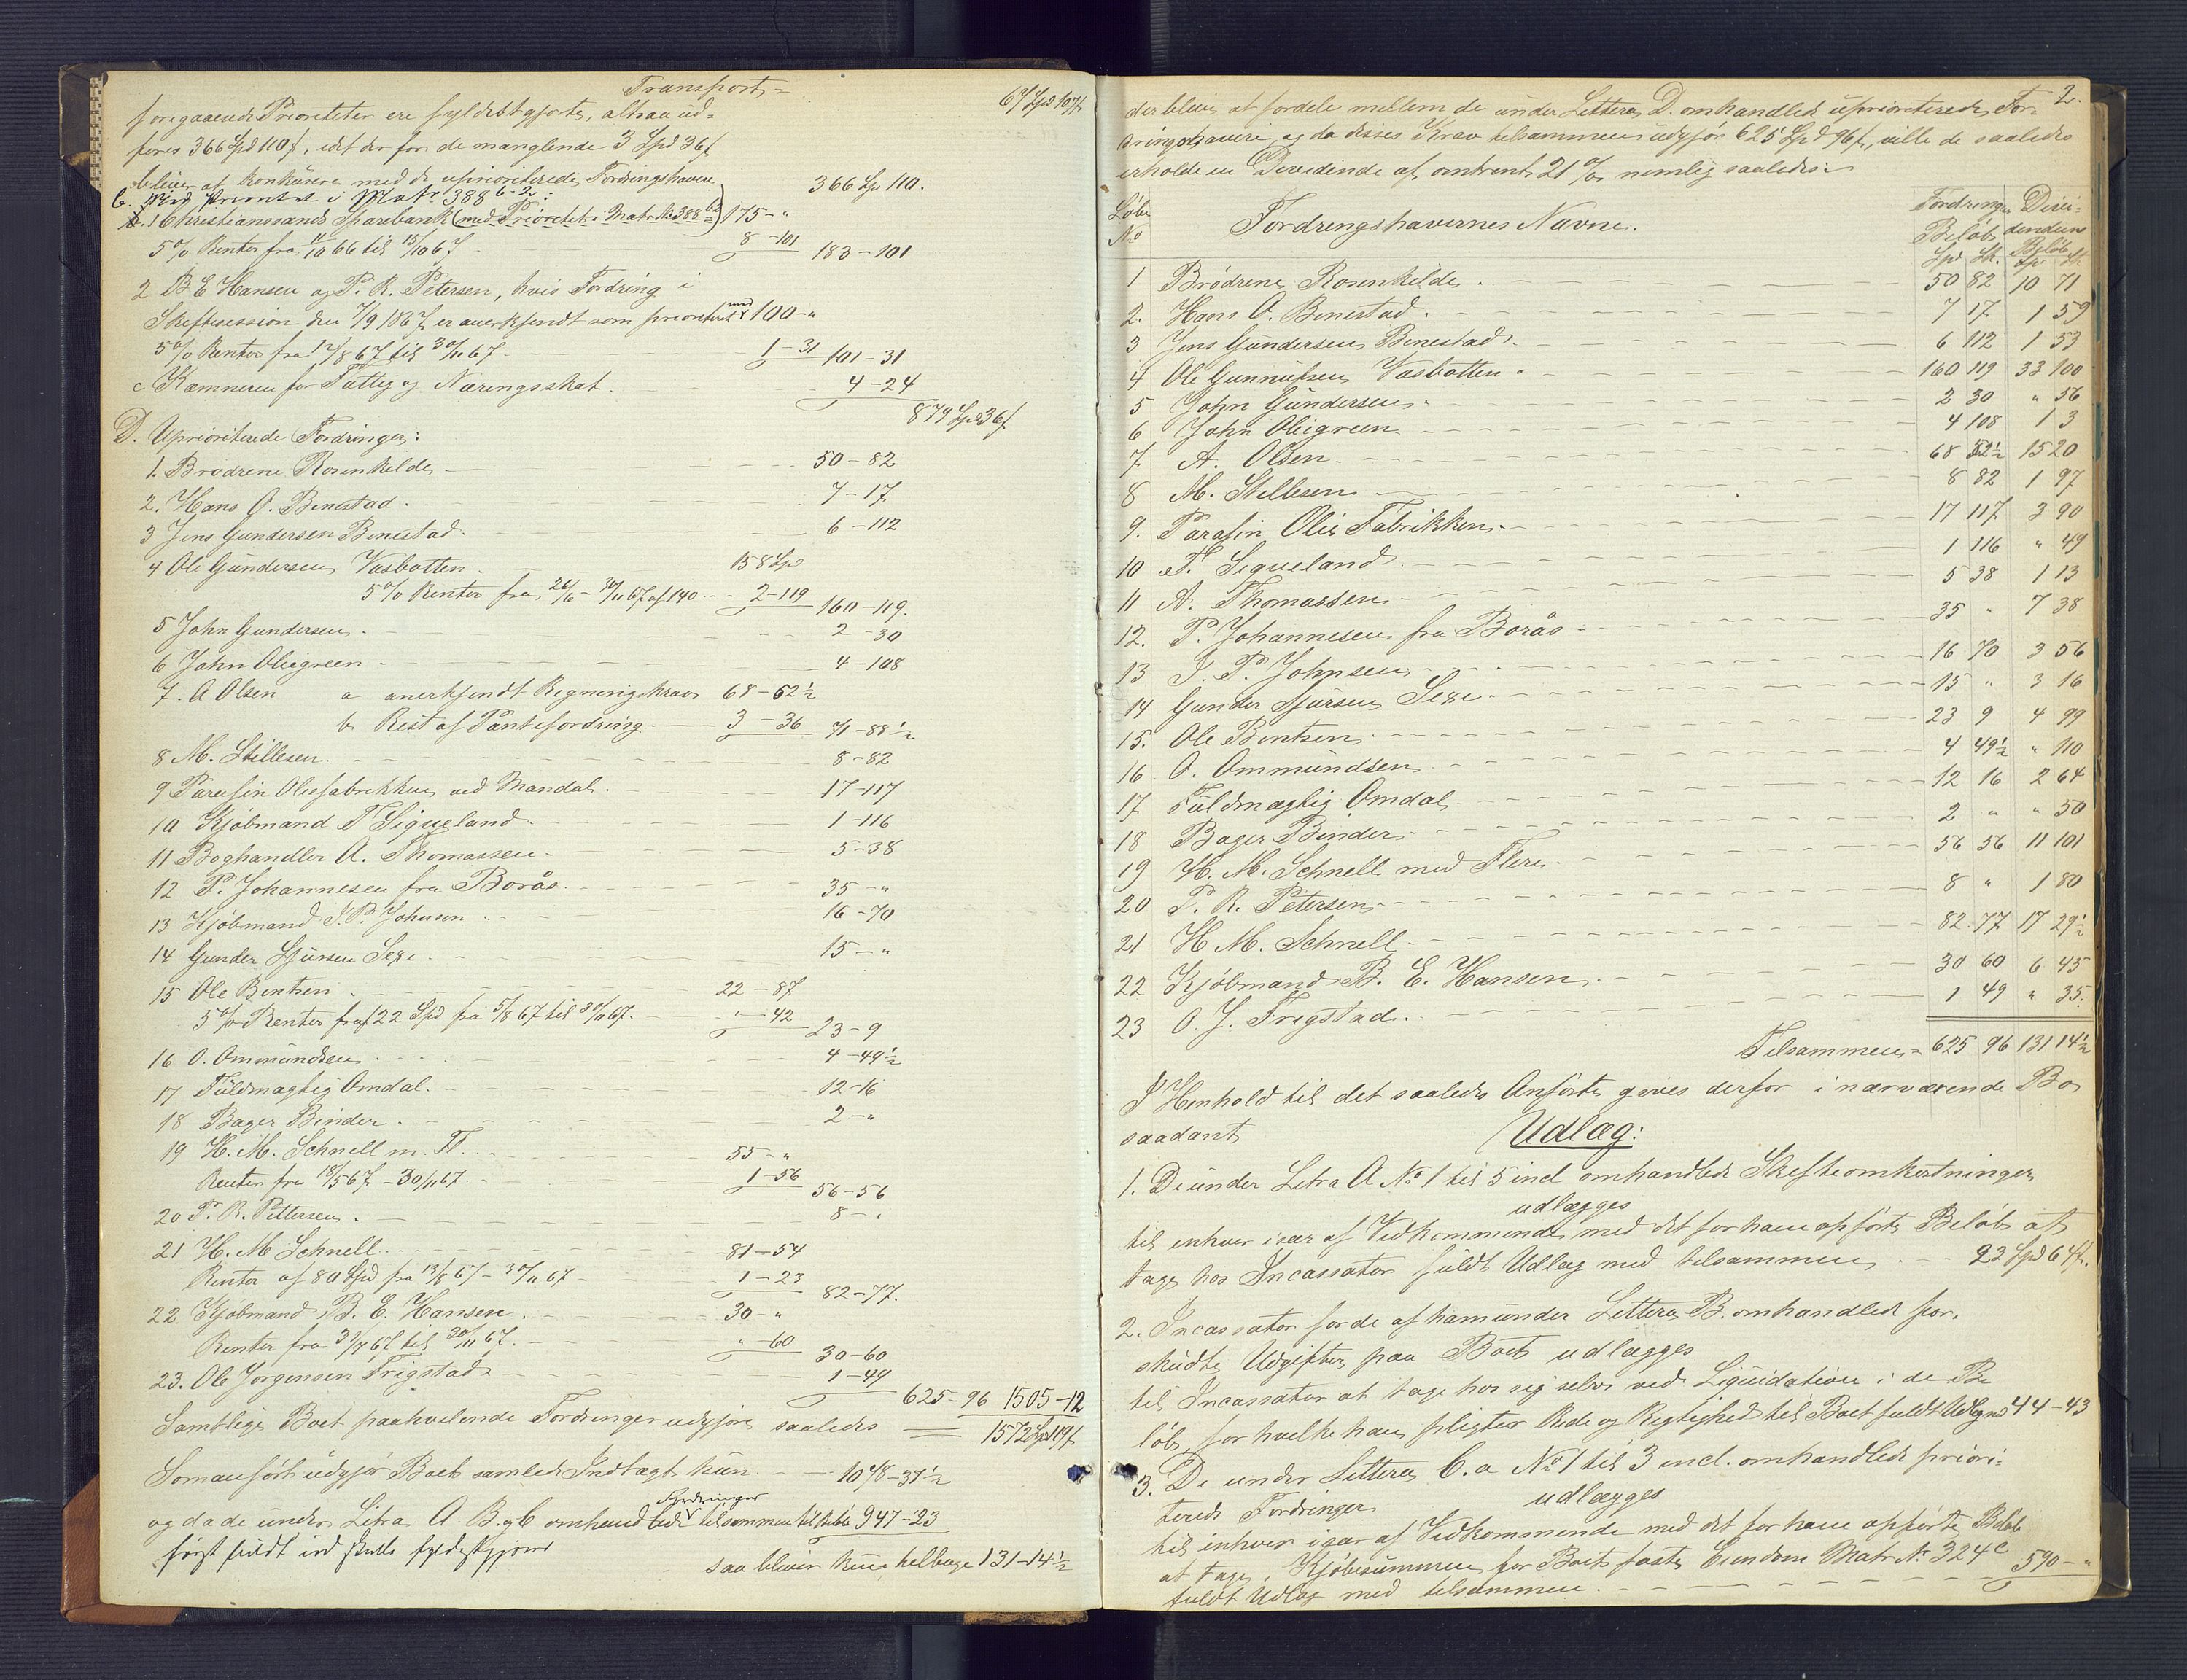 Transport =
67 Spd 107 ß
foregaaende Prioriteter ere fyldestgjorte, altsaa ud-
føres 366 Spd 110 ß, idet der for de manglende 3 Spd 36 ß
bliver at konkurere med de uprioriterede Fordringshavere
366 Sp 110.
b. Med Prioritet i Matr 388 b-2:
1 Christianssands Sparebank (med Prioritet i Matr. No 388 b2) 175 - "
5 % Renter fra 11/10 66 til 15/10 67 8 - 101 183 - 101
2 B E Hansen og P. R. Petersen, hvis Fordring i
Skiftesession den 7/9 1867 er anerkjendt som prioriteret med 100 - "
5 % Renter fra 12/8 67 til 30/11 67. 1 - 31 101 - 31
c Kæmneren for Fattig og Næringsskat. 4 - 24
879 Spd 36 ß
D. Uprioriterede Fordringer:
1. Brødrene Rosenkilde - 50 - 82
2. Hans O. Benestad. 7 - 17
3 Jens Gundersen Benestad. 6 - 112
4 Ole Gundersen Vasbotten. 158 Spd
5 % Renter fra 26/6 - 30/11 67 af 140 - 2 - 119 160 - 119.
5 John Gundersen. 2 - 30
6 John Oliegreen - 4 - 108
7. A Olsen a anerkjendt Regningskrav 68 - 52 ½
b Rest af Pantefordring. 3 - 36 71 - 88 ½
8 M. Stillesen. 8 - 82
9 Parafin Oliefabrikken ved Mandal. 17 - 117
10 Kjøbmand T Sigueland 1 - 116
11 Boghandler A. Thomassen - 5 - 38
12 P. Johannesen fra Borås. 35 - "
13 Kjøbmand J. P. Johnsen 16 - 70
14 Gunder Sjursen Sexe. 15 - "
15 Ole Bentsen 22 - 87
5 % Renter fraf 22 Spd fra 5/8 67 til 30/11 67. " - 42 23 - 9
16 O. Ommundsen 4 - 49 ½
17 Fuldmægtig Omdal. 12 - 16
18 Bager Binder. 2 - "
19 H. M. Schnell m. Fl. 55 - "
Renter fra 18/5 67 - 30/11 67. 1 - 56 56 - 56
20 P. R. Pettersen. 8 - "
21 H. M Schnell 81 - 54
Renter af 80 Spd fra 13/8 67 - 30/11 67 - 1 - 23 82 - 77.
22 Kjøbmand B. E. Hansen. 30 - "
Renter fra 3/7 67 til 30/11 67. " - 60 30 - 60
23. Ole Jørgensen Frigstad. 1 - 49
625 - 96 1505 - 12
Samtlige Boet paahvilende Fordringer udgjøre saaledes 1572 Spd 119 ß
Somanført udgjør Boets samlede Indtægt kun. 1078 - 37 ½
og da de under Litra A. B. og C omhandlede Fordringer tilsammen til Beløb 947 - 23
først fuldt ud skulle fyldestgjøres
saa bliver kun tilbage 131 - 14 ½
2.
der blive at fordele mellem de under Littera D. omhandlede uprioriterede For-
dringshavere, og da disses Krav tilsammen udgjør 625 Spd 96 ß, ville de saaledes
erholde en Dividende af omtrent 21 %, nemlig saaledes:
Løbe No Fordringshavernes Navne. Fordringens Beløb Spd Sk. Dividendens Beløb Sp Sk
1 Brødrene Rosenkilde. 50 82 10 71
2. Hans O. Benestad. 7 17 1 59
3 Jens Gundersen Benestad. 6 112 1 53
4 Ole Gunnufsen Vasbotten. 160 119 33 100
5 John Gundersen. 2 30 " 56
6 John Oliegreen 4 108 1 3
7 A. Olsen. 68 52 ½ 15 20
8 M. Stillesen 8 82 1 97
9. Parafin Olie Fabrikken. 17 117 3 90
10 T. Sigueland. 1 116 " 49
11 A. Thomassen 5 38 1 13
12. P. Johannesen fra Borås 35 " 7 38
13 J. P. Johnsen 16 70 3 56
14 Gunder Sjursen Sexe. 15 " 3 16
15. Ole Bentsen 23 9 4 99
16 O. Ommundsen 4 49 ½ " 110
17 Fuldmægtig Omdal 12 16 2 64
18 Bager Binder 2 " " 50
19 H. M. Schnell med Flere. 56 56 11 101
20 P. R. Petersen 8 " 1 80
21 H M. Schnell 82 77 17 29 ½
22 Kjøbmand B. E. Hansen. 30 60 6 45
23 O. J. Frigstad. 1 49 " 35.
Tilsammen = 625 96 131 14 ½
I Henhold til det saaledes Anførte gives derfor i nærværende Bo
saadant
Udlæg:
1. De under Litra A No 1 til 5 incl omhandlede Skifteomkostninger
udlægges
til enhver især af Vedkommende med det for ham opførte Beløb at
tage hos Incassator fuldt Udlæg med tilsammen 23 Spd 64 ß.
2. Incassator for de af ham under Littera B. omhandlede for-
skudte Udgifter paa Boet udlægges
til Incassator at tage hos sig selv ved Liquidation i de Be
løb, for hvilke han pligter Rede og Rigtighed til Boet fuldt Udlæg med 44 - 43
3. De under Littera C. a No 1 til 3 incl. omhandlede priori-
terede Fordringer udlægges
til enhver især af Vedkommende med det for ham opførte Beløb
at tage i Kjøbesummen for Boets faste Eiendom Matr No 324 c
fuldt Udlæg med tilsammen. 590 - "